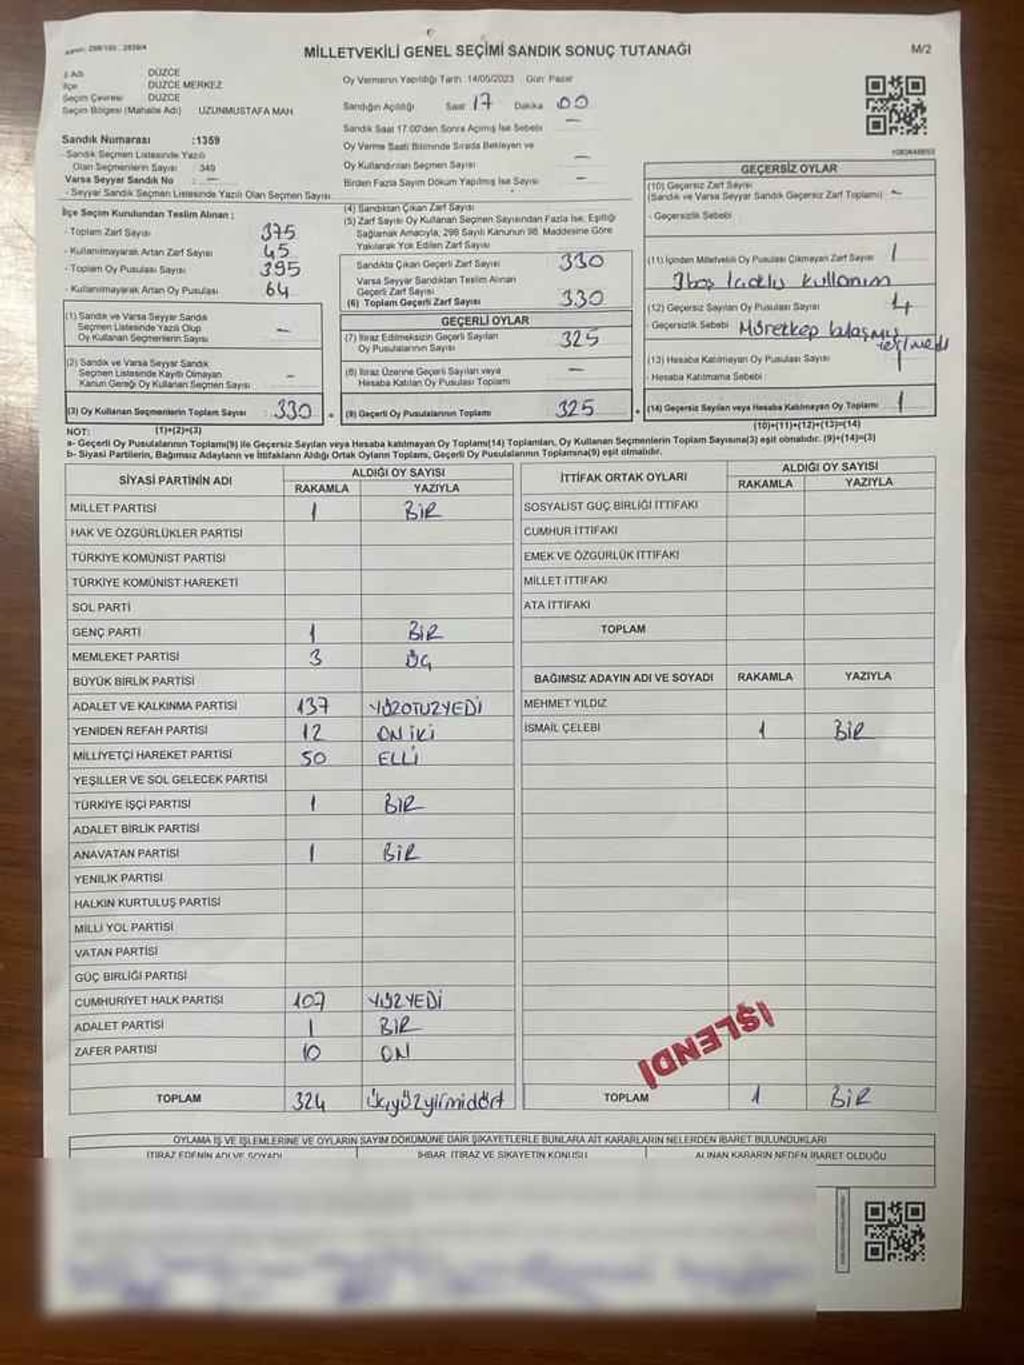 MİLLETVEKİLİ GENEL SEÇİMİ SANDIK SONUÇ TUTANAĞI
M/2
DÜZCE
İlçe DÜZCE MERKEZ
Seçim Çevresi DÜZCE
Seçim Bölgesi (Mahalle Adı) UZUNMUSTAFA MAH
Oy Vermenin Yapıldığı Tarih :14/05/2023 Gün: Pazar
Sandığın Açıldığı Saat 17 Dakika 00
Sandık Saat 17:00'den Sonra Açılmış İse Sebebi —
Oy Verme Saati Bitiminde Sırada Bekleyen ve
Oy Kullandırılan Seçmen Sayısı —
Birden Fazla Sayım Döküm Yapılmış İse Sayısı —
Sandık Numarası :1359
- Sandık Seçmen Listesinde Yazılı
Olan Seçmenlerin Sayısı : 349
Varsa Seyyar Sandık No : —
- Seyyar Sandık Seçmen Listesinde Yazılı Olan Seçmen Sayısı
İlçe Seçim Kurulundan Teslim Alınan ;
- Toplam Zarf Sayısı 375
- Kullanılmayarak Artan Zarf Sayısı 45
- Toplam Oy Pusulası Sayısı 395
- Kullanılmayarak Artan Oy Pusulası 64
(1) Sandık ve Varsa Seyyar Sandık
Seçmen Listesinde Yazılı Olup
Oy Kullanan Seçmenlerin Sayısı —
(2) Sandık ve Varsa Seyyar Sandık
Seçmen Listesinde Kayıtlı Olmayan
Kanun Gereği Oy Kullanan Seçmen Sayısı —
(3) Oy Kullanan Seçmenlerin Toplam Sayısı 330
(4) Sandıktan Çıkan Zarf Sayısı
(5) Zarf Sayısı Oy Kullanan Seçmen Sayısından Fazla İse, Eşitliği
Sağlamak Amacıyla, 298 Sayılı Kanunun 98. Maddesine Göre
Yakılarak Yok Edilen Zarf Sayısı
Sandıkta Çıkan Geçerli Zarf Sayısı 330
Varsa Seyyar Sandıktan Teslim Alınan
Geçerli Zarf Sayısı
(6) Toplam Geçerli Zarf Sayısı 330
GEÇERLİ OYLAR
(7) İtiraz Edilmeksizin Geçerli Sayılan
Oy Pusulalarının Sayısı 325
(8) İtiraz Üzerine Geçerli Sayılan veya
Hesaba Katılan Oy Pusulası Toplamı —
(9) Geçerli Oy Pusulalarının Toplamı 325
GEÇERSİZ OYLAR
(10) Geçersiz Zarf Sayısı
(Sandık ve Varsa Seyyar Sandık Geçersiz Zarf Toplamı) —
- Geçersizlik Sebebi
(11) İçinden Milletvekili Oy Pusulası Çıkmayan Zarf Sayısı 1
kullanım
(12) Geçersiz Sayılan Oy Pusulası Sayısı 4
- Geçersizlik Sebebi Mürekkep
(13) Hesaba Katılmayan Oy Pusulası Sayısı
- Hesaba Katılmama Sebebi :
(14) Geçersiz Sayılan veya Hesaba Katılmayan Oy Toplamı 1
(10)+(11)+(12)+(13)=(14)
NOT: (1)+(2)=(3)
a- Geçerli Oy Pusulalarının Toplamı(9) ile Geçersiz Sayılan veya Hesaba katılmayan Oy Toplamı(14) Toplamları, Oy Kullanan Seçmenlerin Toplam Sayısına(3) eşit olmalıdır. (9)+(14)=(3)
b- Siyasi Partilerin, Bağımsız Adayların ve İttifakların Aldığı Ortak Oyların Toplamı, Geçerli Oy Pusulalarının Toplamına(9) eşit olmalıdır.
SİYASİ PARTİNİN ADI ALDIĞI OY SAYISI
RAKAMLA YAZIYLA
MİLLET PARTİSİ 1 BİR
HAK VE ÖZGÜRLÜKLER PARTİSİ
TÜRKİYE KOMÜNİST PARTİSİ
TÜRKİYE KOMÜNİST HAREKETİ
SOL PARTİ
GENÇ PARTİ 1 BİR
MEMLEKET PARTİSİ 3 ÜÇ
BÜYÜK BİRLİK PARTİSİ
ADALET VE KALKINMA PARTİSİ 137 YÜZOTUZYEDİ
YENİDEN REFAH PARTİSİ 12 ON İKİ
MİLLİYETÇİ HAREKET PARTİSİ 50 ELLİ
YEŞİLLER VE SOL GELECEK PARTİSİ
TÜRKİYE İŞÇİ PARTİSİ 1 BİR
ADALET BİRLİK PARTİSİ
ANAVATAN PARTİSİ 1 BİR
YENİLİK PARTİSİ
HALKIN KURTULUŞ PARTİSİ
MİLLİ YOL PARTİSİ
VATAN PARTİSİ
GÜÇ BİRLİĞİ PARTİSİ
CUMHURİYET HALK PARTİSİ 107 YÜZYEDİ
ADALET PARTİSİ 1 BİR
ZAFER PARTİSİ 10 ON
TOPLAM 324 Üçyüzyirmidört
İTTİFAK ORTAK OYLARI ALDIĞI OY SAYISI
RAKAMLA YAZIYLA
SOSYALİST GÜÇ BİRLİĞİ İTTİFAKI
CUMHUR İTTİFAKI
EMEK VE ÖZGÜRLÜK İTTİFAKI
MİLLET İTTİFAKI
ATA İTTİFAKI
TOPLAM
BAĞIMSIZ ADAYIN ADI VE SOYADI RAKAMLA YAZIYLA
MEHMET YILDIZ
İSMAİL ÇELEBİ 1 BİR
İŞLENDİ
TOPLAM 1 BİR
OYLAMA İŞ VE İŞLEMLERİNE VE OYLARIN SAYIM DÖKÜMÜNE DAİR ŞİKAYETLERLE BUNLARA AİT KARARLARIN NELERDEN İBARET BULUNDUKLARI
İTİRAZ EDENİN ADI VE SOYADI İHBAR, İTİRAZ VE ŞİKAYETİN KONUSU ALINAN KARARIN NEDEN İBARET OLDUĞU